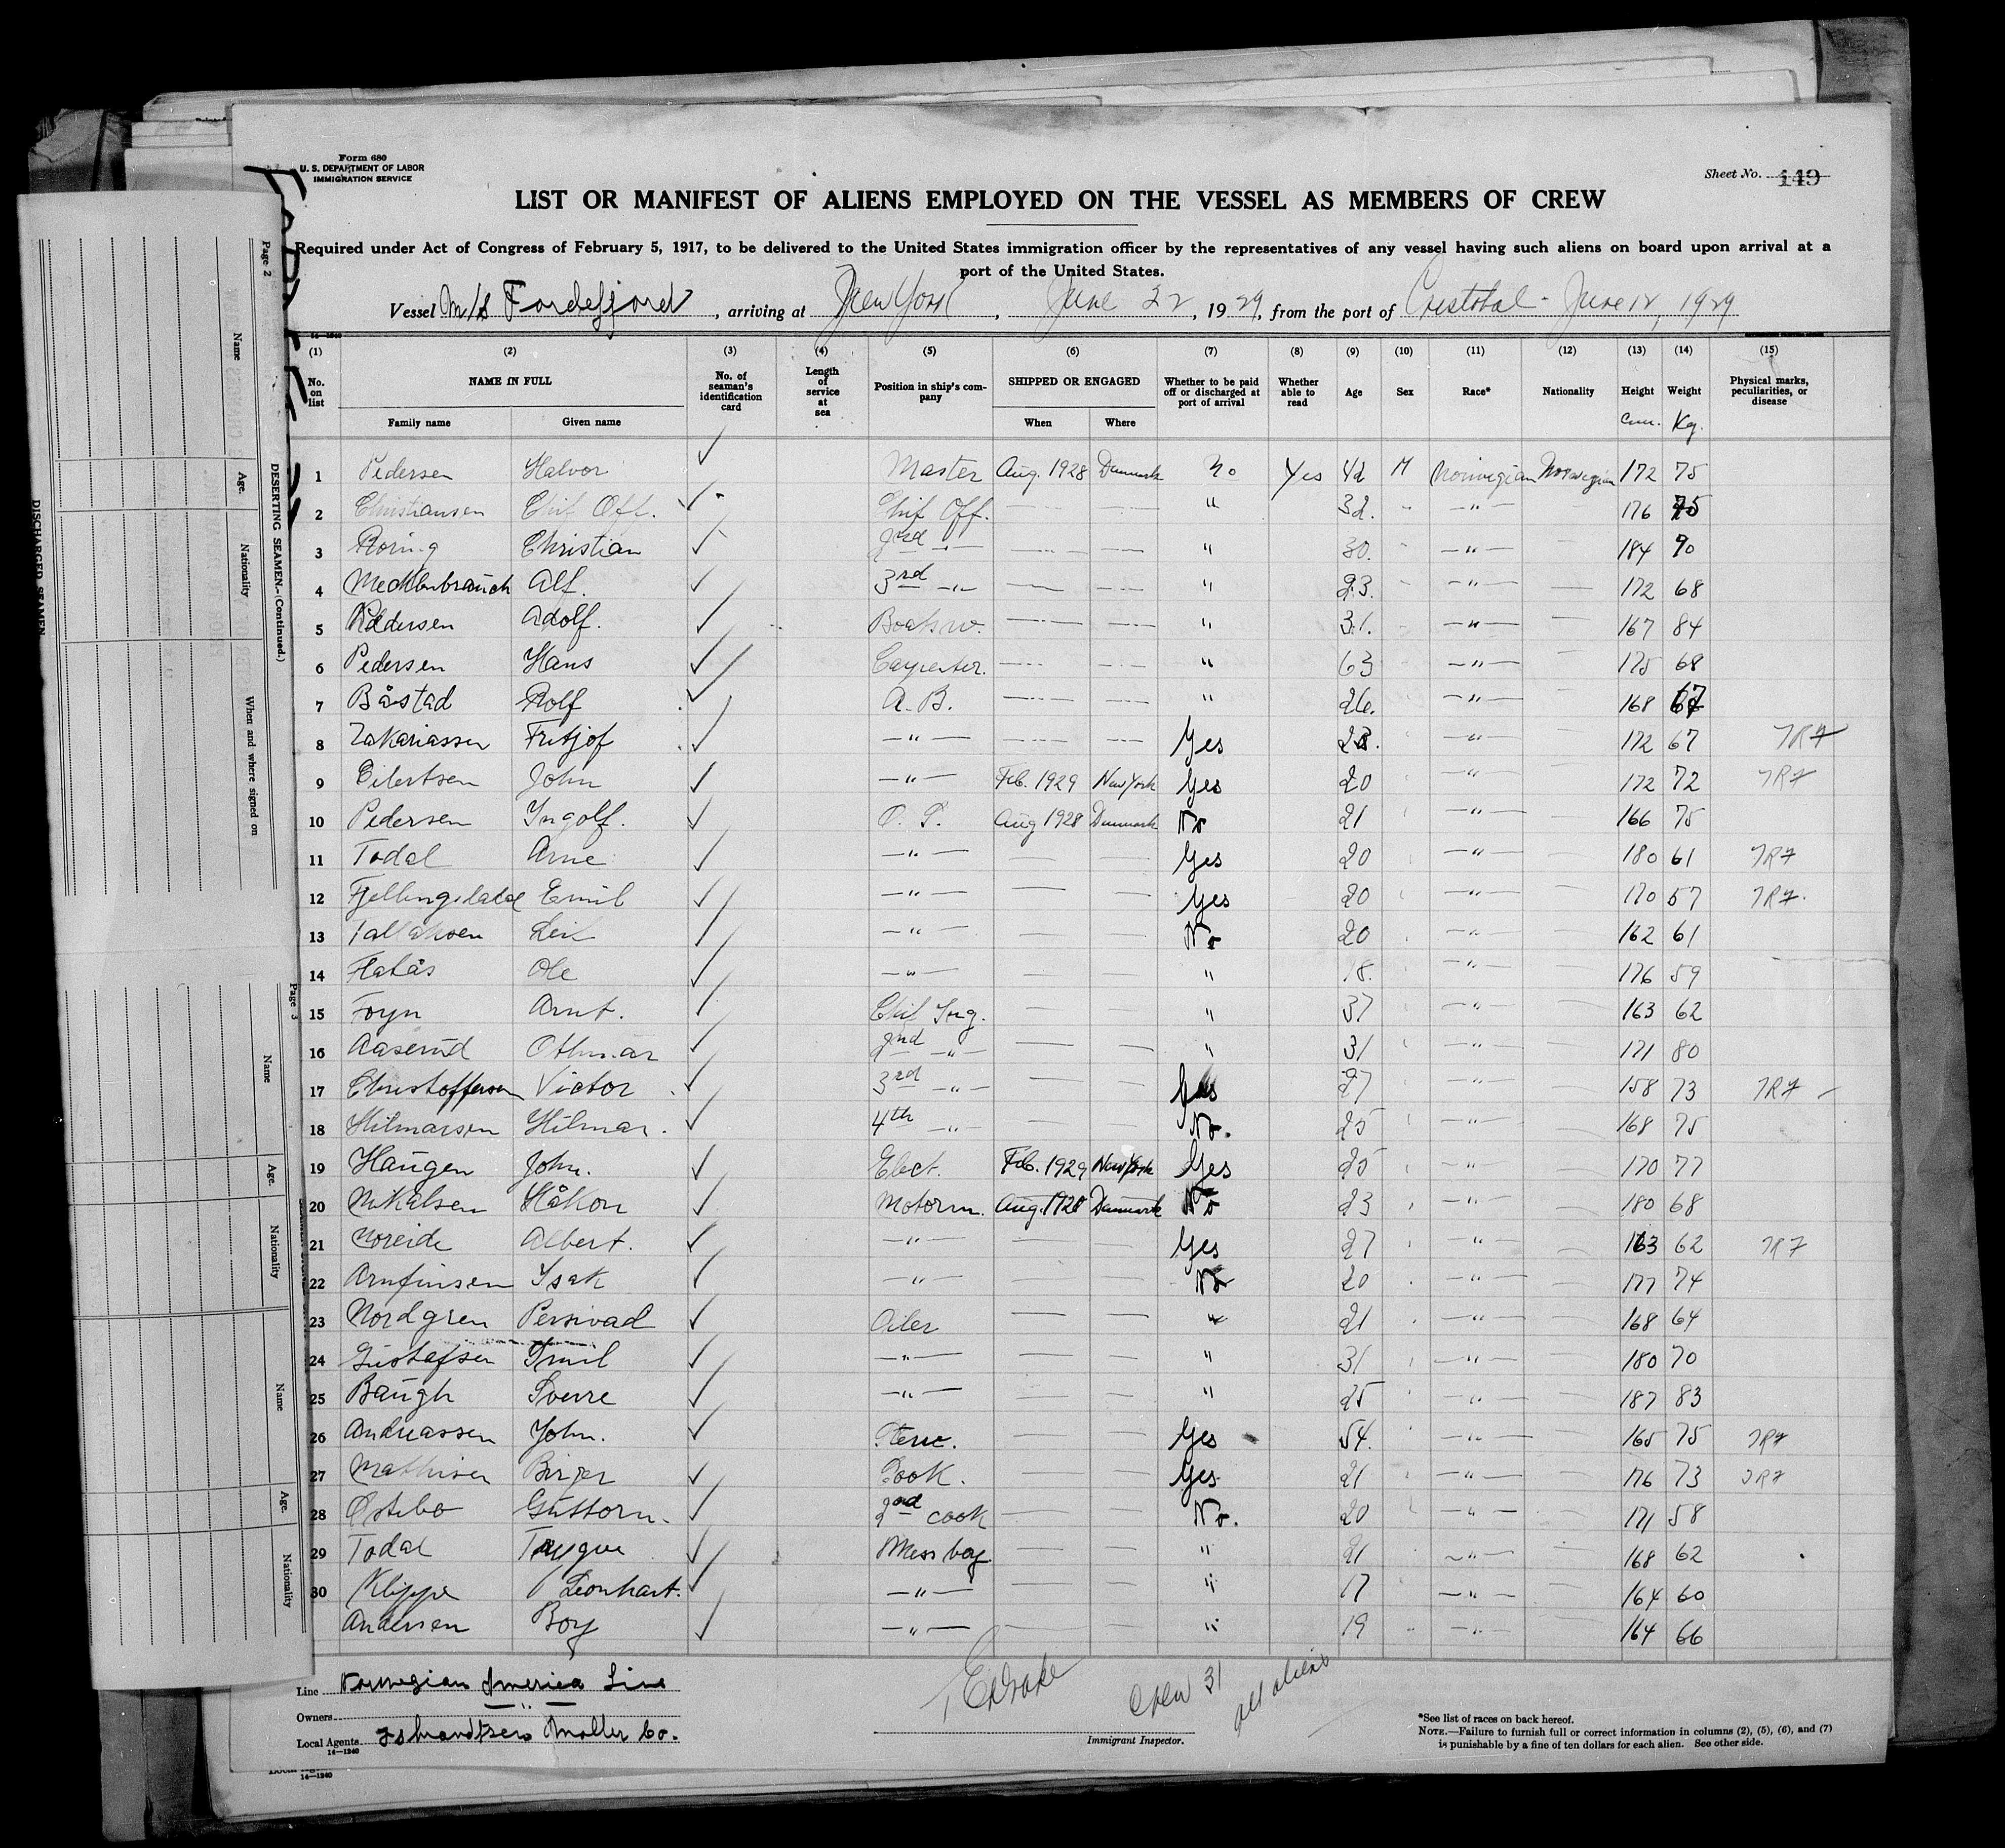 Form 680
U. S. DEPARTMENT OF LABOR
IMMIGRATION SERVICE
Sheet No. 149
LIST OR MANIFEST OF ALIENS EMPLOYED ON THE VESSEL AS MEMBERS OF CREW
Required under Act of Congress of February 5, 1917, to be delivered to the United States immigration officer by the representatives of any vessel having such aliens on board upon arrival at a
port of the United States.
Vessel M/S Fordefjord, arriving at New York, June 22, 1929, from the port of Cristobal - June 12, 1929
14—1240
(1) (2) (3) (4) (5) (6) (7) (8) (9) (10) (11) (12) (13) (14) (15)
No. on list NAME IN FULL No. of seaman's identification card Length of service at sea Position in ship's company SHIPPED OR ENGAGED Whether to be paid off or discharged at port of arrival Whether able to read Age Sex Race* Nationality Height Weight Physical marks, peculiarities, or disease
Family name Given name When Where Cm. Kg.
1 Pedersen Halvor Master Aug. 1928 Danmark No Yes 42 M Norwegian Norwegian 172 75
2 Christiansen Chif Off. Chif Off. " 32. " 176 75
3 Roring Christian 2nd " " 30. " 184 90
4 Alf. 3rd " " 23. " 172 68
5 Pedersen Adolf. Boatsw. " 31. " 167 84
6 Pedersen Hans Carpenter. " 63 " 175 68
7 Båstad Rolf A. B. " 26. " 168 67
8 Zakariassen Fritjof " Yes " 172 67
9 Eilertsen John " Feb. 1929 New York Yes 20 " 172 72
10 Pedersen Ingolf. O. S. Aug 1928 Danmark No 21 " 166 75
11 Todal Arne " Yes 20 " 180 61
12 Emil " Yes 20 " 170 57
13 Leif " No 20 " 162 61
14 Flatås Ole " " 18. " 176 59
15 Foyn Arnt. Chif Ing. " 37 " 163 62
16 Aaserud Othmar 2nd " " 31 " 171 80
17 Christoffersen Victor 3rd " Yes 27 " 158 73
18 Hilmarsen Hilmar. 4th " No. 25 " 168 75
19 Haugen John. Elect. Feb. 1929 New York Yes 25 " 170 77
20 Mikalsen Håkon Motorm. Aug. 1928 Danmark No 23 " 180 68
21 Noreide Albert. " Yes 27 " 163 62
22 Arnfinsen Isak " No 20 " 177 74
23 Nordgren Persivad Oiler " 21 " 168 64
24 Gustafsen Emil " " 31 " 180 70
25 Baugh Sverre " " 25 " 187 83
26 Andreassen John. Yes 54. " 165 75
27 Mathisen Birger Cook. Yes 21 " 176 73
28 Østebo Guttorm. 2nd cook No. 20 " 171 58
29 Todal Trygve Mess boy " 21 " 168 62
30 Klippe Leonhart. " " 17 " 164 60
Andersen Boy " " 19 " 164 66
Line Norwegian America Line
Owners "
Local Agents Moller Co.
14—1240
Crew 31
all aliens
Immigrant Inspector.
*See list of races on back hereof.
NOTE.—Failure to furnish full or correct information in columns (2), (5), (6), and (7)
is punishable by a fine of ten dollars for each alien. See other side.
14—1240
DISCHARGED SEAMEN
DESERTING SEAMEN.—(Continued.)
Page 2
Name
Age.
Nationality
When and where signed on
Page 3
Name
Age.
Nationality
Name
Age.
Nationality